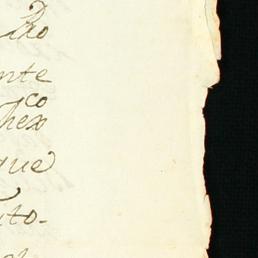 Dro
nte
co
hex
que
uto-